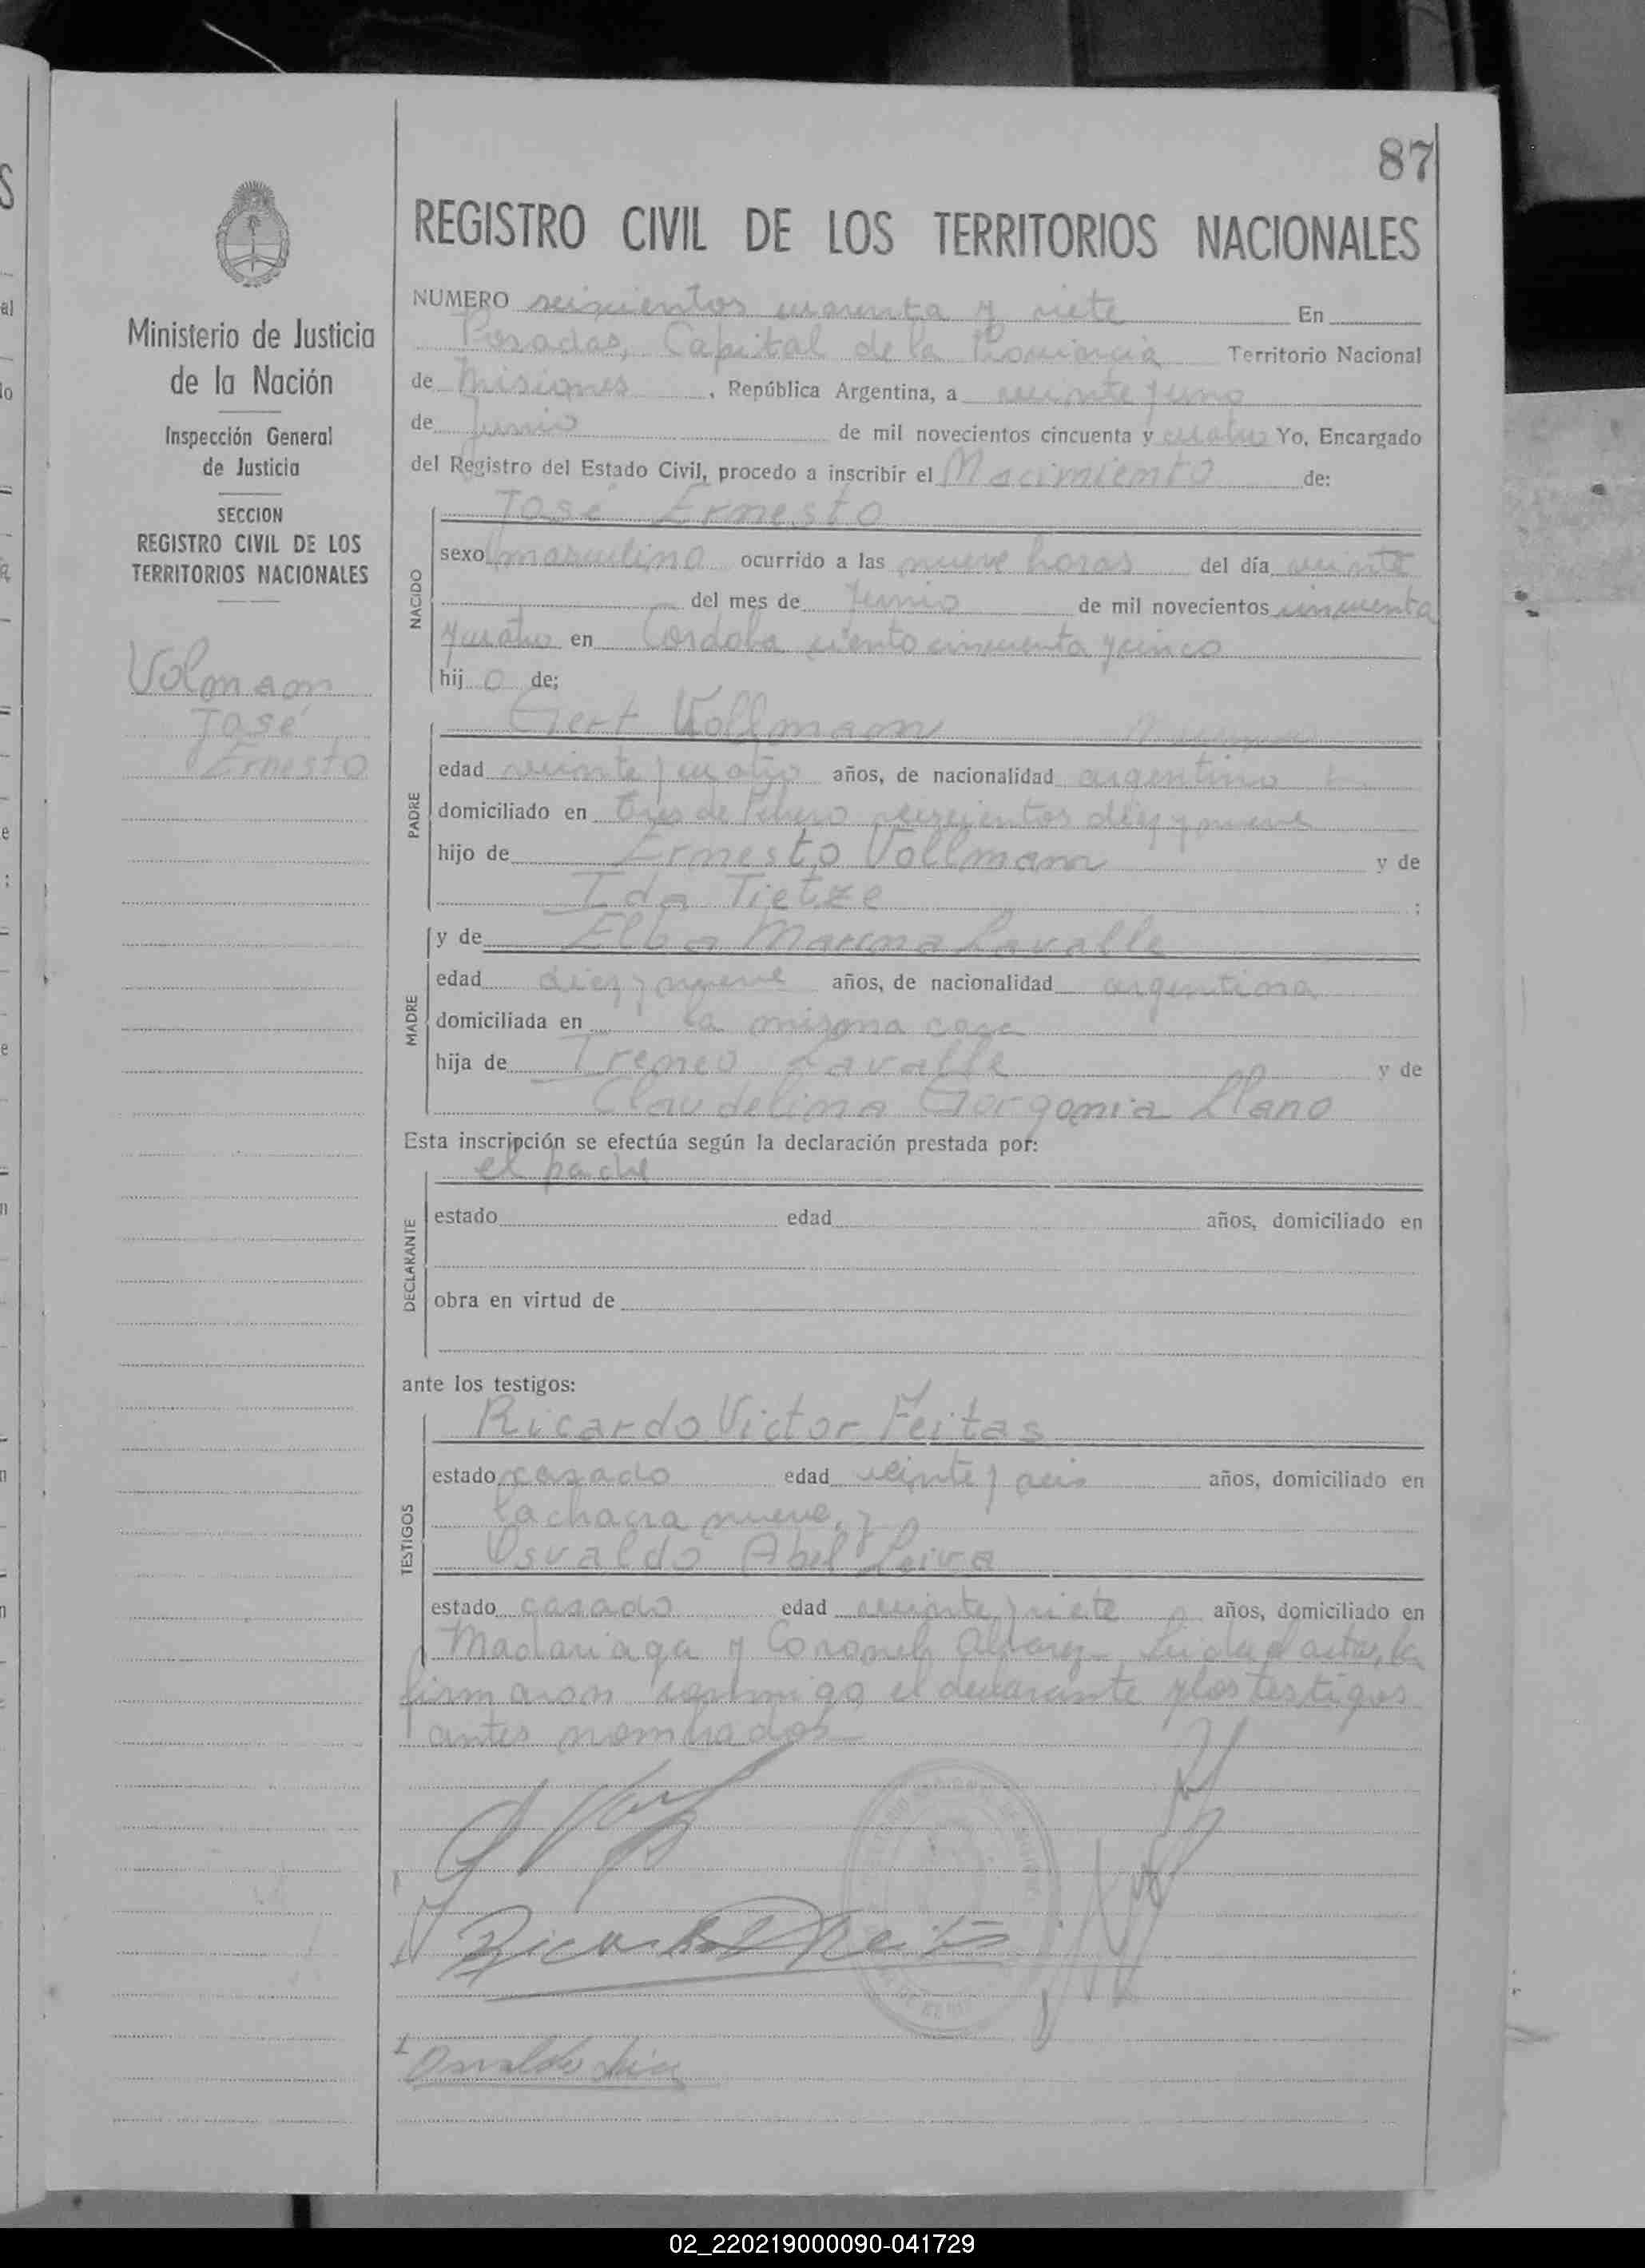 87
REGISTRO CIVIL DE LOS TERRITORIOS NACIONALES
Ministerio de Justicia
de la Nación
Inspección General
de Justicia
SECCION
REGISTRO CIVIL DE LOS
TERRITORIOS NACIONALES
Volmaan
José
Ernesto
NUMERO seiscientos cuarenta y siete En
Posadas, Capital de la Provincia Territorio Nacional
de Misiones, República Argentina, a veinte y uno
de Junio de mil novecientos cincuenta y cuatro Yo, Encargado
del Registro del Estado Civil, procedo a inscribir el Nacimiento de:
NACIDO
José Ernesto
sexo masculino ocurrido a las nueve horas del día veinte
del mes de Junio de mil novecientos cincuenta
y cuatro en Córdoba ciento cincuenta y cinco
hijo de;
PADRE
Gert Vollmaan
edad veinte y cuatro años, de nacionalidad argentino
domiciliado en tres de Febrero seiscientos diez y nueve
hijo de Ernesto Vollmann y de
Ida Tietze ;
MADRE
y de Elba Marina Lavalle
edad diez y nueve años, de nacionalidad argentina
domiciliada en la misma casa
hija de Ireneo Lavalle y de
Claudelina Gorgonia Llano
Esta inscripción se efectúa según la declaración prestada por:
DECLARANTE
el padre
estado edad años, domiciliado en
obra en virtud de
ante los testigos:
TESTIGOS
Ricardo Victor Feitas
estado casado edad veinte y seis años, domiciliado en
la chacra nueve, y
Osvaldo Abel Leiva
estado casado edad veinte y siete años, domiciliado en
Madariaga y Coronel Alvarez Leida el acta, la
firmaron conmigo el declarante y los testigos
antes nombrados
Osvaldo Leiva
02_220219000090-041729